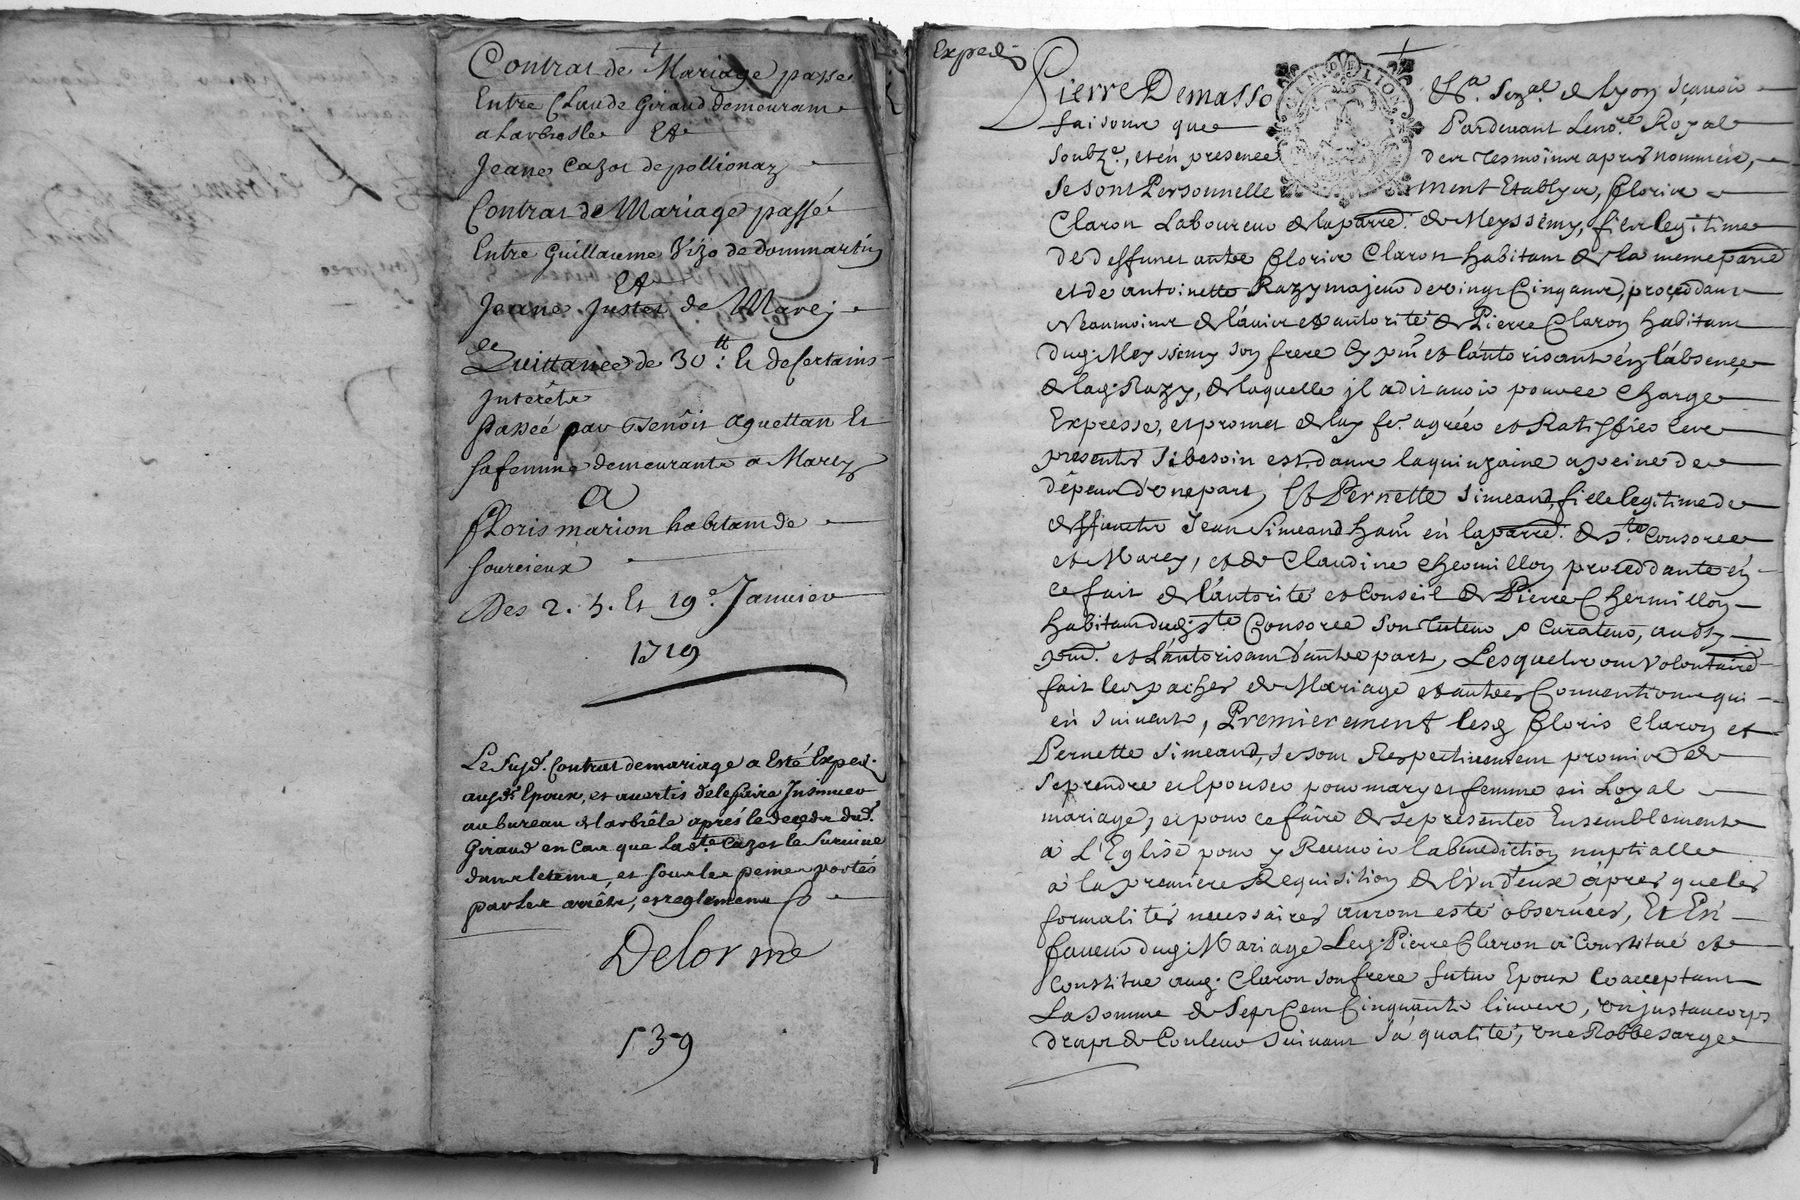 Contrat de Mariage passe
Entre Claude Giraud demeurant
a Larbresle Et
Jeane Cazot de pollionaz
Contrat de Mariage passé
Entre Guillaume Vizo de dommartin
Et
Jeane Juster de Marcy
Quittance de 30 tt Et de Certains
Interêts
Passée par Benôit aguettan Et
sa femme demeurante a Marcy
A
floris marion habitant de
Sourcieux
Des 2. 5. Et 19e Janvier
1719
Le Susd. Contrat de mariage a Esté Exped.
ausds Epoux, et avertis de le faire Insinuer
au bureau de larbrêle aprés le deceds dud.
Giraud en Cas que Lad.te Cazot le Survive
dans le tems, et sous les peines portés
par les arrêts, et reglemens
Delorme
139
Exped.
Pierre Demasso
GEN. DE LION
Sen.al de Lyon Sçavoir
faisons que Pardevant Le no.re Royal
soubz.é, et én presence des Tesmoins aprés nommées,
se sont Personnellement Establys, Floris
Claron Laboureur de la parr.e de Meyssimy, fils legitime
de deffunct autre Floris Claron habitant de la meme parr.e
et de antoinette Razy majeur de vingt Cinq ans, procedant
Neanmoins de l'avis et autorité de Pierre Claron habitant
dug. Meyssimy son frere Cy pnt et l'autorisant én l'absence
de lag. Razy, de laquelle il a dit avoir pouvoir Charge
Expresse, et promet de luy fe. agréér et Ratiffier les
presentes si besoin est dans la quinzaine a peine de
dépens d'une part, Et Pernette Simeand, fille legitime de
deffunct Jean Simeand hant én la parr.e de S.te Consorce
et Marcy, et de Claudine Chermillon procedante én
ce fait de l'autorité et Conseil de Pierre Chermillon
habitant dug. S.te Consorce son Tuteur & Curateur, aussy
pnt. et L'autorisant d'autre part, Lesquels ont Volontaire.t
fait les paches de Mariage et autres Conventions qui
én suivent, Premierement lesg. Floris Claron et
Pernette Simeand, se sont Respectivement promis de
se prendre et Epouser pour mary et femme en Loyal
mariage, et pour ce faire de se presenter Ensemblement
à L'Eglise pour y Recevoir la benediction nuptialle
à la premiere Requisition de l'un d'eux aprés que les
formalités necessaires auront esté observées, Et En
faveur dug. Mariage Leg. Pierre Claron a Constitué et
Constitue aug. Claron son frere futur Epoux Ce acceptant
La Somme de Sept Cent Cinquante livres, un justaucorps
drap de Couleur Suivant sa qualité, une Robbe sarge